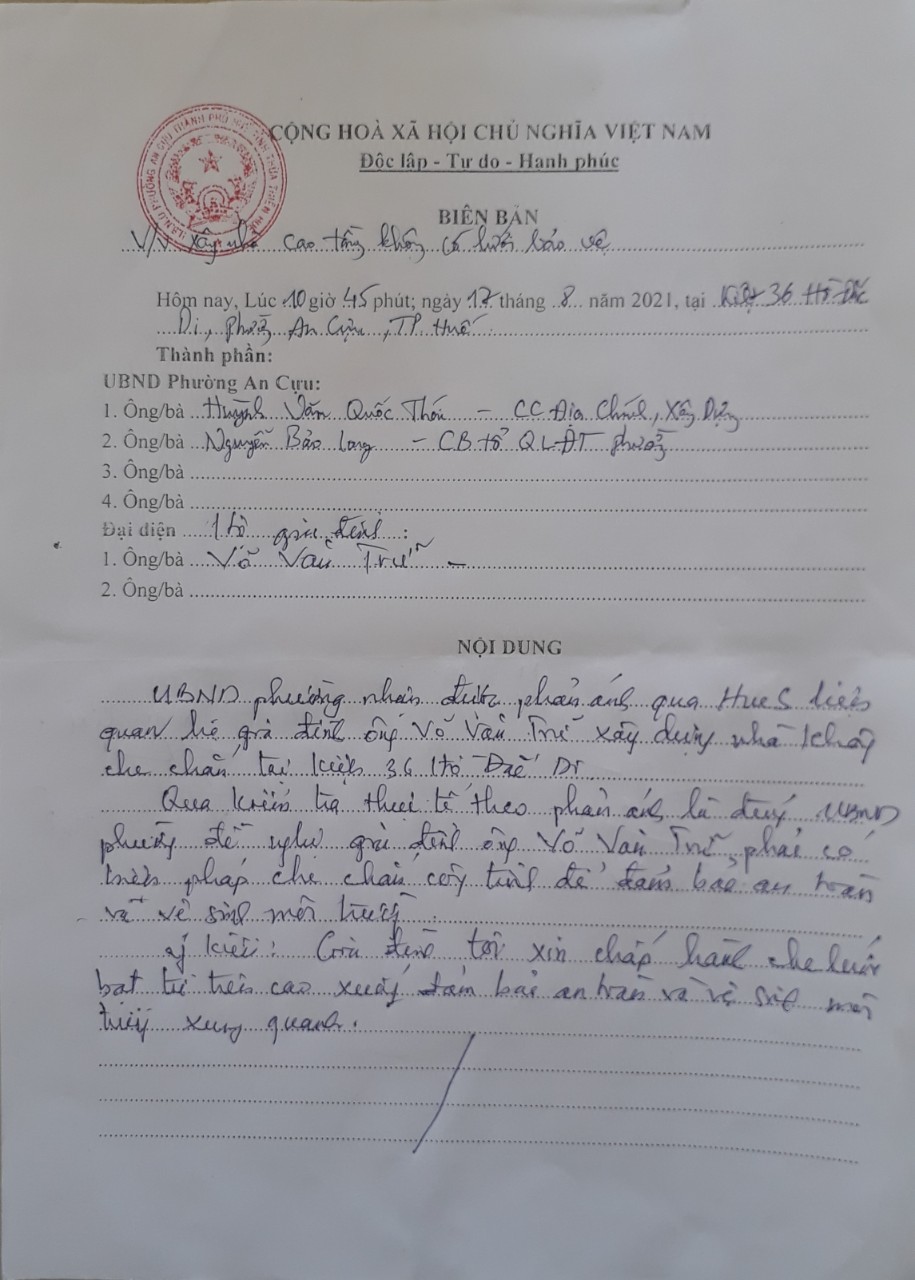 CỘNG HOÀ XÃ HỘI CHỦ NGHĨA VIỆT NAM
Độc lập - Tự do - Hạnh phúc
BIÊN BẢN
V/v xây nhà cao tầng không có lưới bảo vệ
Hôm nay, Lúc 10 giờ 45 phút; ngày 17 tháng 8 năm 2021, tại Kiệt 36 Hồ Đắc
Di, phường An Cựu, TP. Huế
Thành phần:
UBND Phường An Cựu:
1. Ông/bà Huỳnh Văn Quốc Thái - CC Địa Chính, Xây Dựng
2. Ông/bà Nguyễn Bảo Long - CB tổ QLĐT phường
3. Ông/bà
4. Ông/bà
Đại diện Hộ gia đình:
1. Ông/bà Võ Văn Trữ -
2. Ông/bà
NỘI DUNG
UBND phường nhận được phản ánh qua HueS liên
quan hộ gia đình ông Võ Văn Trữ xây dựng nhà không
che chắn tại kiệt 36 Hồ Đắc Di.
Qua kiểm tra thực tế theo phản ánh là đúng UBND
phường đề nghị gia đình ông Võ Văn Trữ phải có
biện pháp che chắn công trình để đảm bảo an toàn
và vệ sinh môi trường.
ý kiến: Gia đình tôi xin chấp hành che lưới
bạt từ trên cao xuống đảm bảo an toàn và vệ sinh môi
trường xung quanh.